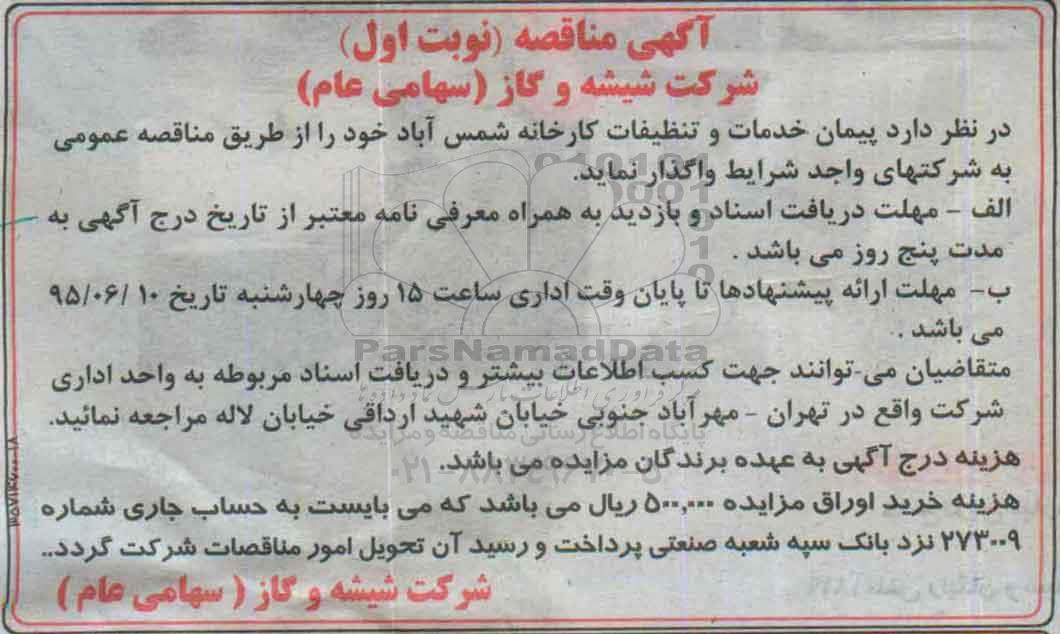 آگهی مناقصه (نوبت اول)
شرکت شیشه و گاز (سهامی عام)
در نظر دارد پیمان خدمات و تنظیفات کارخانه شمس آباد خود را از طریق مناقصه عمومی
به شرکتهای واجد شرایط واگذار نماید.
الف - مهلت دریافت اسناد و بازدید به همراه معرفی نامه معتبر از تاریخ درج آگهی به
مدت پنج روز می باشد .
ب- مهلت ارائه پیشنهادها تا پایان وقت اداری ساعت ۱۵ روز چهارشنبه تاریخ ۱۰ /۹۵/۰۶
می باشد .
ParsNamadData
متقاضیان می-توانند جهت کسب اطلاعات بیشتر و دریافت اسناد مربوطه به واحد اداری
شرکت واقع در تهران - مهرآباد جنوبی خیابان شهید ارداقی خیابان لاله مراجعه نمائید.
پایگاه اطلاع رسانی مناقصه و مزایده
هزینه درج آگهی به عهده برندگان مزایده می باشد.
هزینه خرید اوراق مزایده ۵۰۰,۰۰۰ ریال می باشد که می بایست به حساب جاری شماره
۲۷۳۰۰۹ نزد بانک سپه شعبه صنعتی پرداخت و رسید آن تحویل امور مناقصات شرکت گردد..
شرکت شیشه و گاز ( سهامی عام )